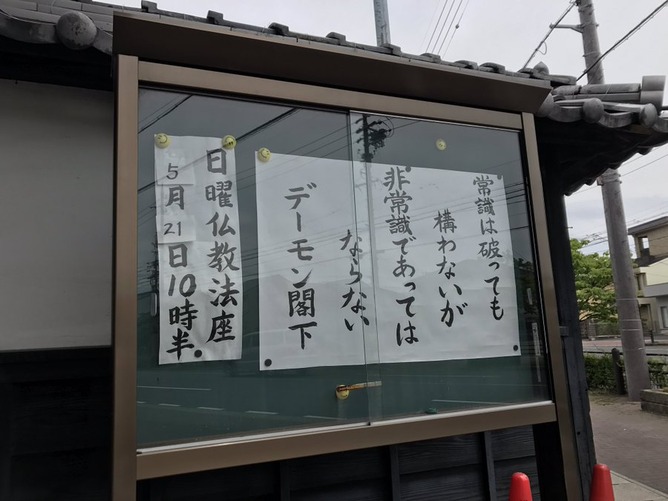 常識は破っても
構わないが
非常識であっては
ならない
デーモン閣下
日曜仏教法座
5月21日10時半.